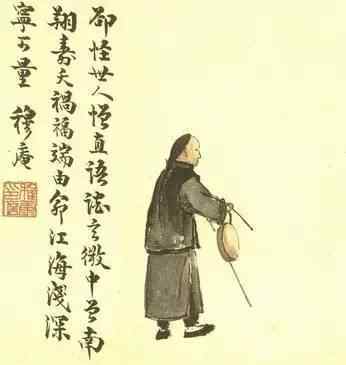 却怪世人憎直語言微中南
翔壽夭禍福端由江海淺深
寧可量 穆庵